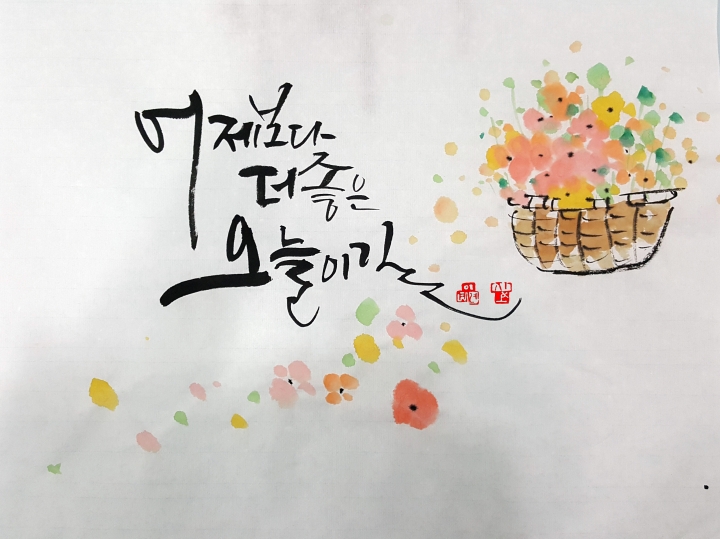 어제보다
더 좋은
오늘이길